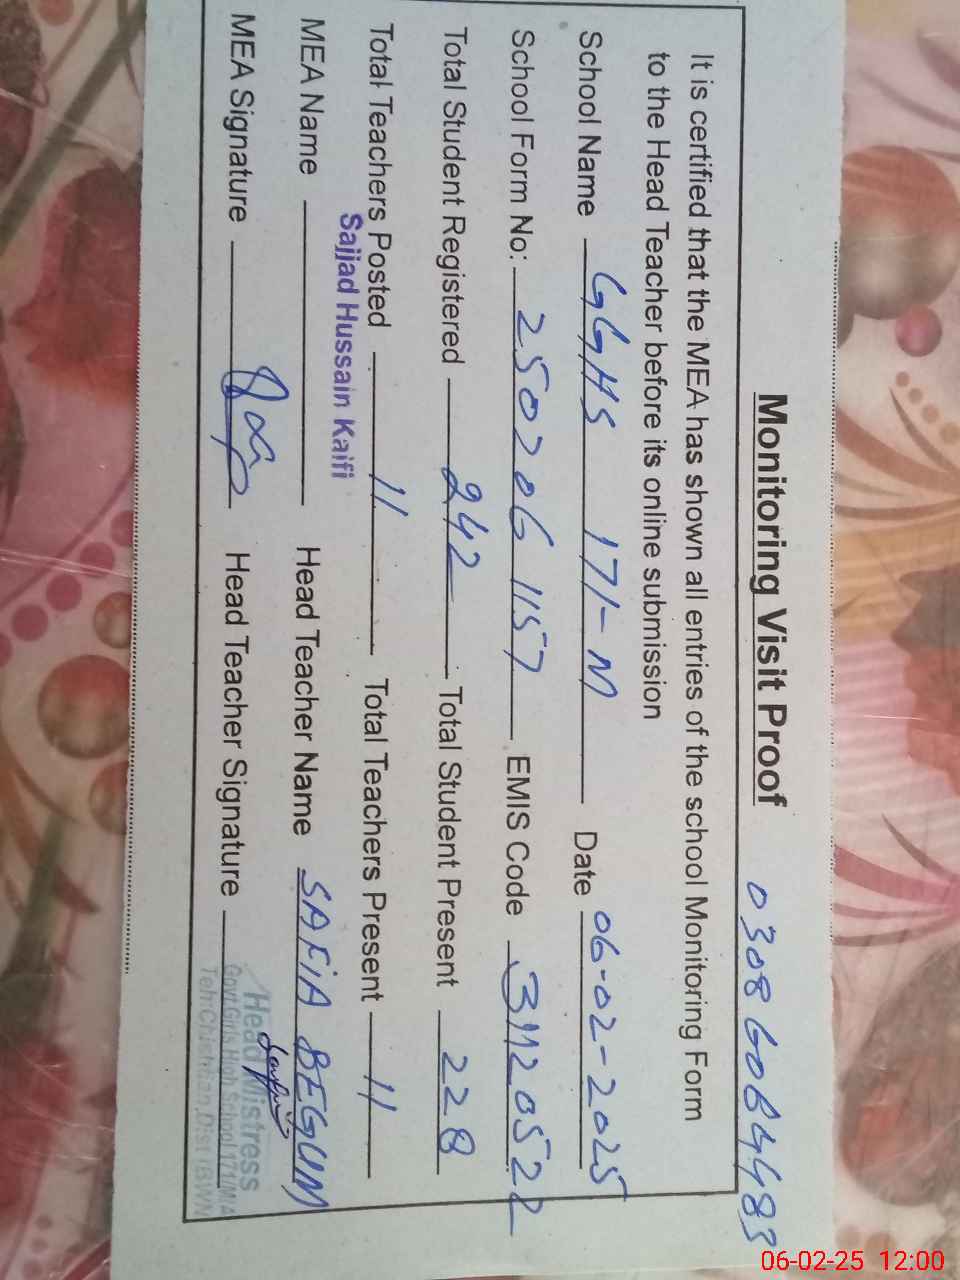 Monitoring Visit Proof 0308 6064483
It is certified that the MEA has shown all entries of the school Monitoring Form
to the Head Teacher before its online submission
School Name GGHS 171-M Date 06-02-2025
School Form No: 250206 1157 EMIS Code 31120522
Total Student Registered 242 Total Student Present 228
Total Teachers Posted 11 Total Teachers Present 11
Sajjad Hussain Kaifi
MEA Name Head Teacher Name SAFIA BEGUM
MEA Signature Head Teacher Signature
Head Mistress
Govt.Girls High School 171/M
Teh:Chishtian,Dist:BWN
06-02-25 12:00